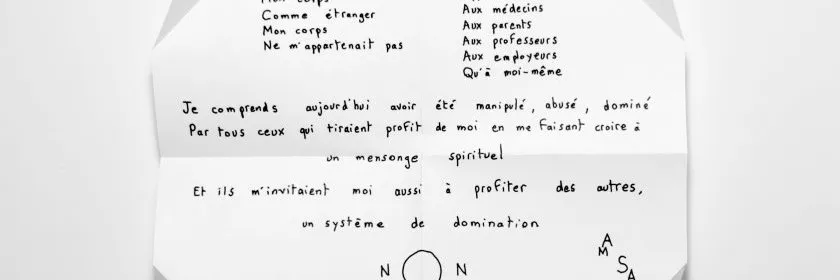 Mon corps
Comme étranger
Mon corps
Ne m'appartenait pas
Aux médecins
Aux parents
Aux professeurs
Aux employeurs
Qu'à moi-même
Je comprends aujourd'hui avoir été manipulé, abusé, dominé
Par tous ceux qui tiraient profit de moi en me faisant croire à
un mensonge spirituel
Et ils m'invitaient moi aussi à profiter des autres,
un système de domination
N O N
A
M
S
A